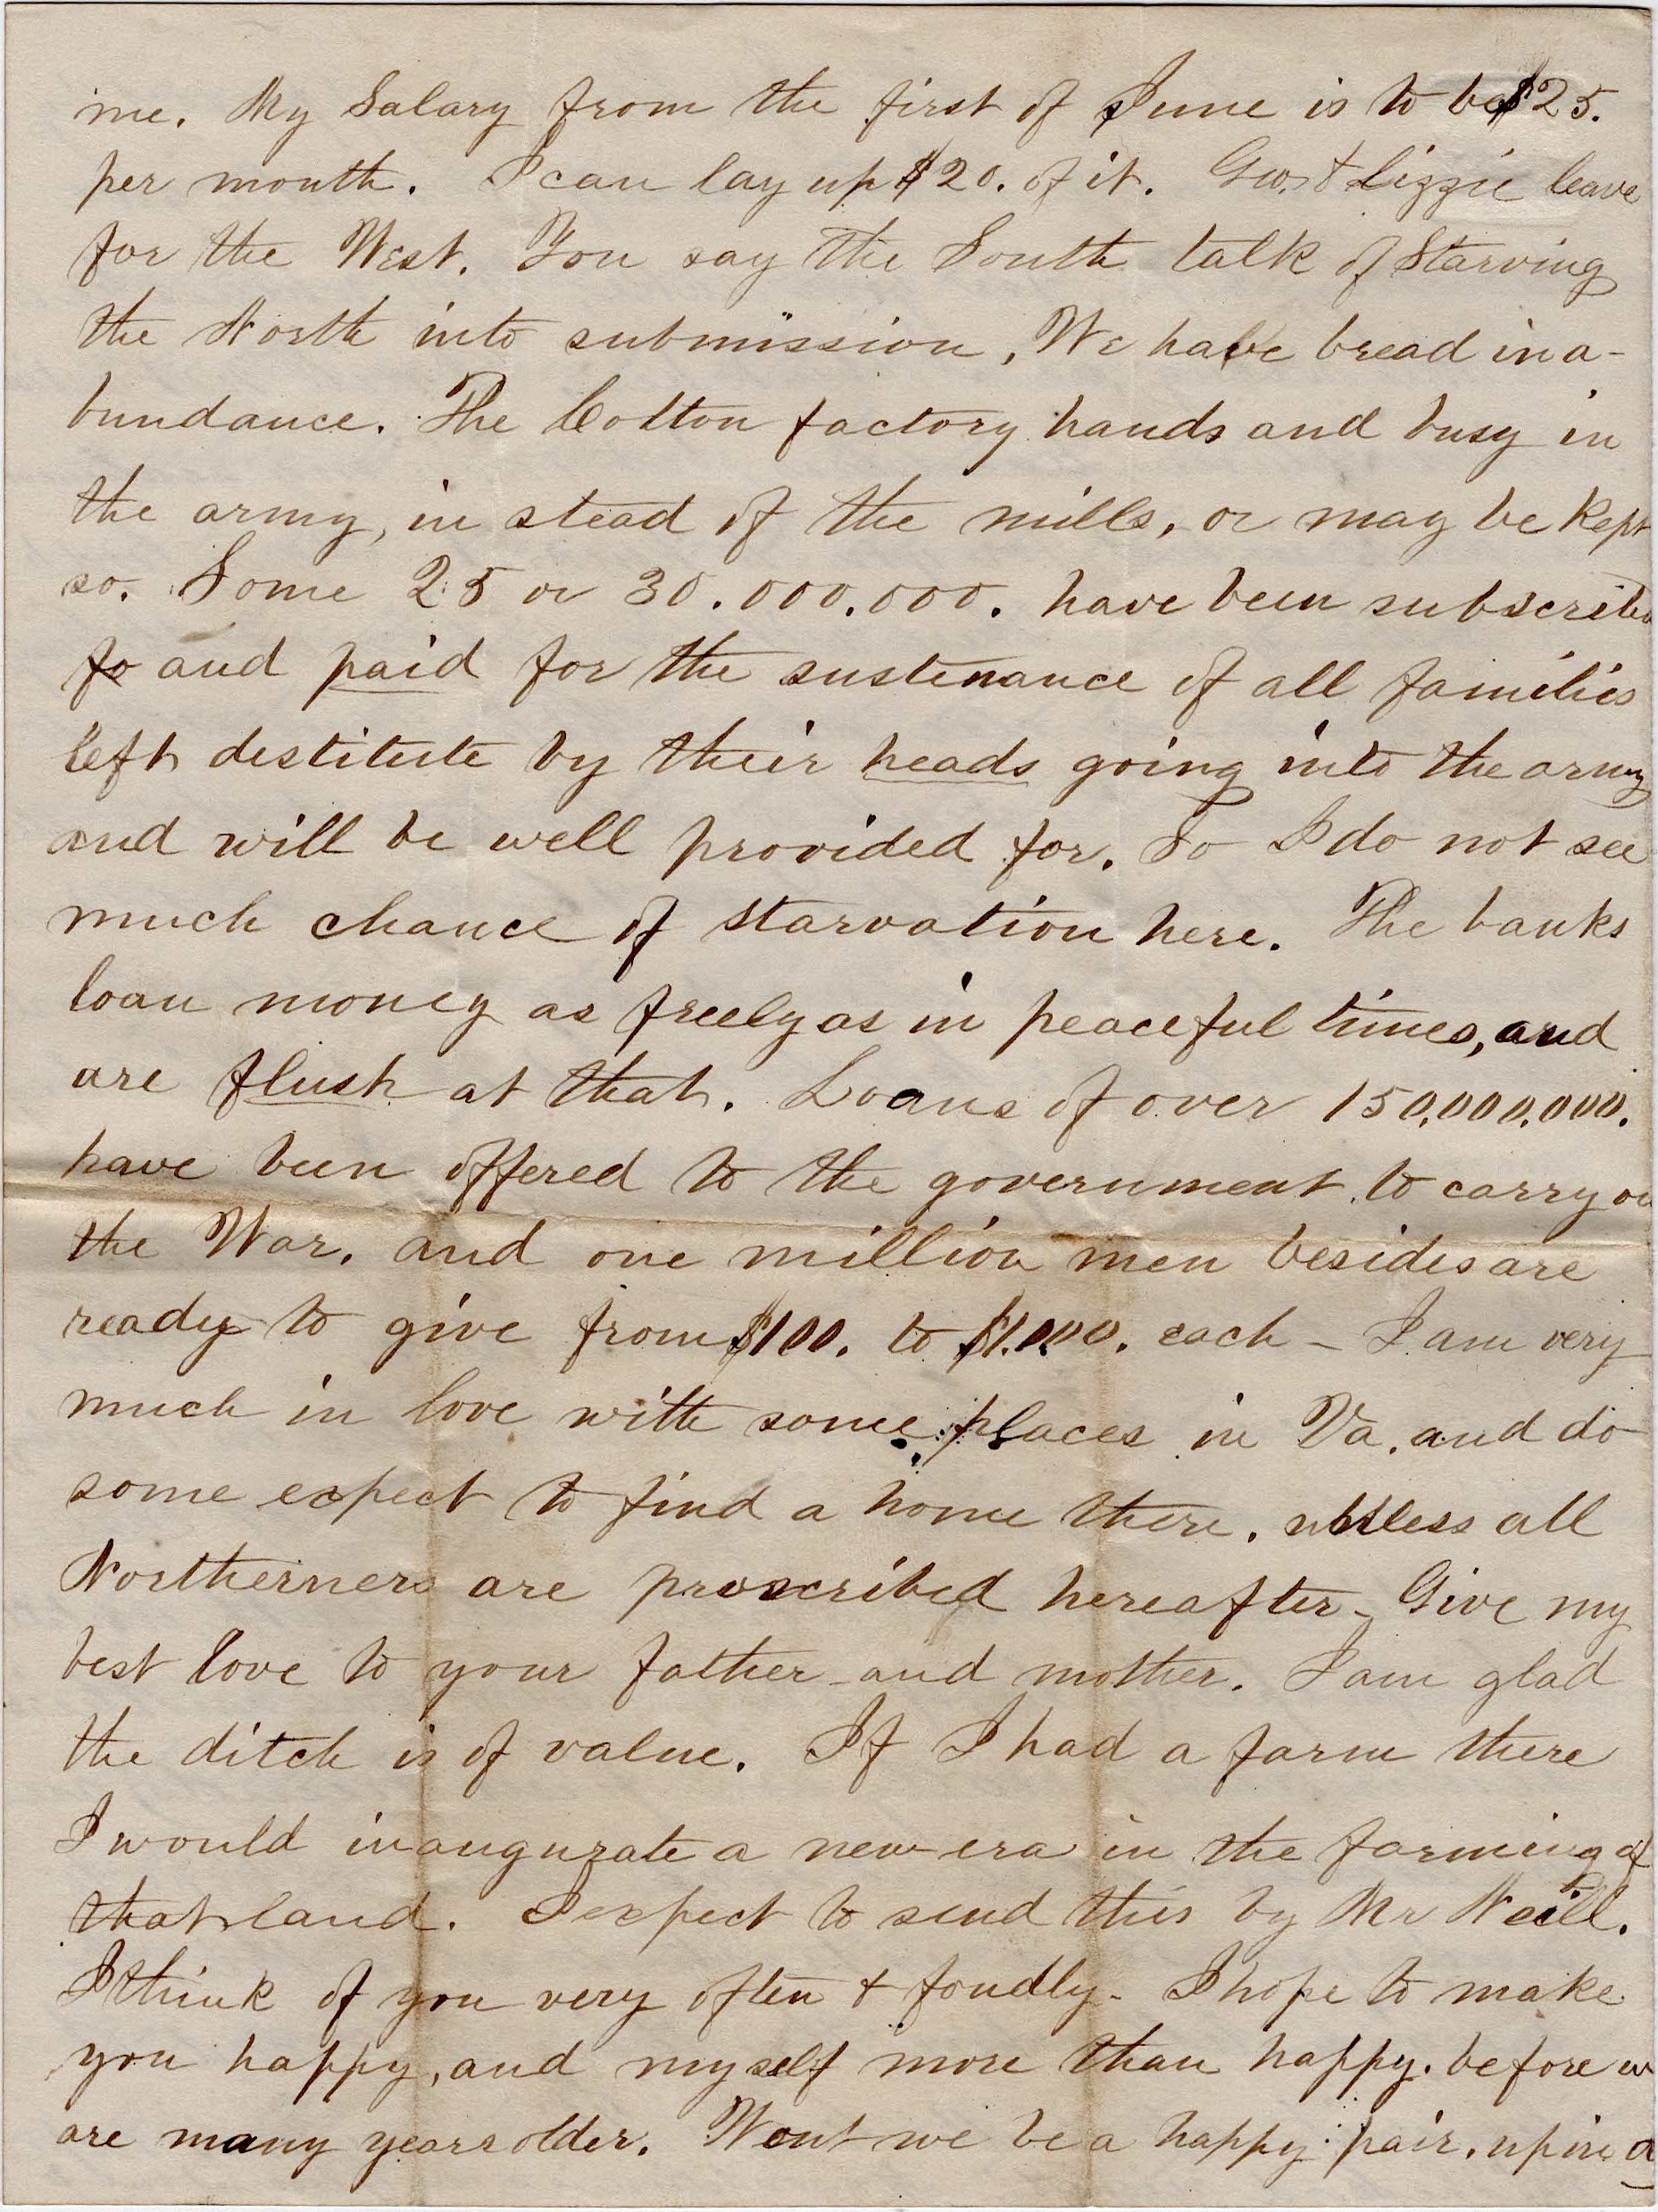 me. My Salary from the first of June is to be $25.
per month. I can lay up $20. of it. Geo. & Lizzie leave
for the West. You say the South talk of Starving
the North into submission, We have bread in a-
bundance. The Cotton factory hands and busy in
the army, in stead of the mills, or may be kept
so. Some 25 or 30.000.000. have been subscribed
fo and paid for the sustenance of all families
left destitute by their heads going into the army
and will be well provided for. So I do not see
much chance of starvation here. The banks
loan money as freely as in peaceful times, and
are flush at that. Loans of over 150,000,000.
have been offered to the government to carry on
the War. and one million men besides are
ready to give from $100. to $1.000. each - I am very
much in love with some places in Va. and do
some expect to find a home there. unless all
Northerners are proscribed hereafter - Give my
best love to your father and mother. I am glad
the ditch is of value. If I had a farm there
I would inaugurate a new era in the farming of
that land. I expect to send this by Mr Neill.
I think of you very often & fondly - I hope to make
you happy, and myself more than happy. before w
are many years older. Wont we be a happy pair. up in a